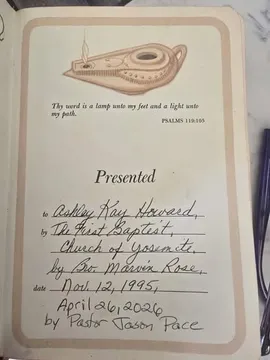 Thy word is a lamp unto my feet and a light unto
my path.
PSALMS 119:105
Presented
to Ashley Kay Howard,
by The First Baptist,
Church of Yosemite,
by Bro. Marvin Rose,
date Nov. 12, 1995,
April 26, 2026
by Pastor Jason Pace